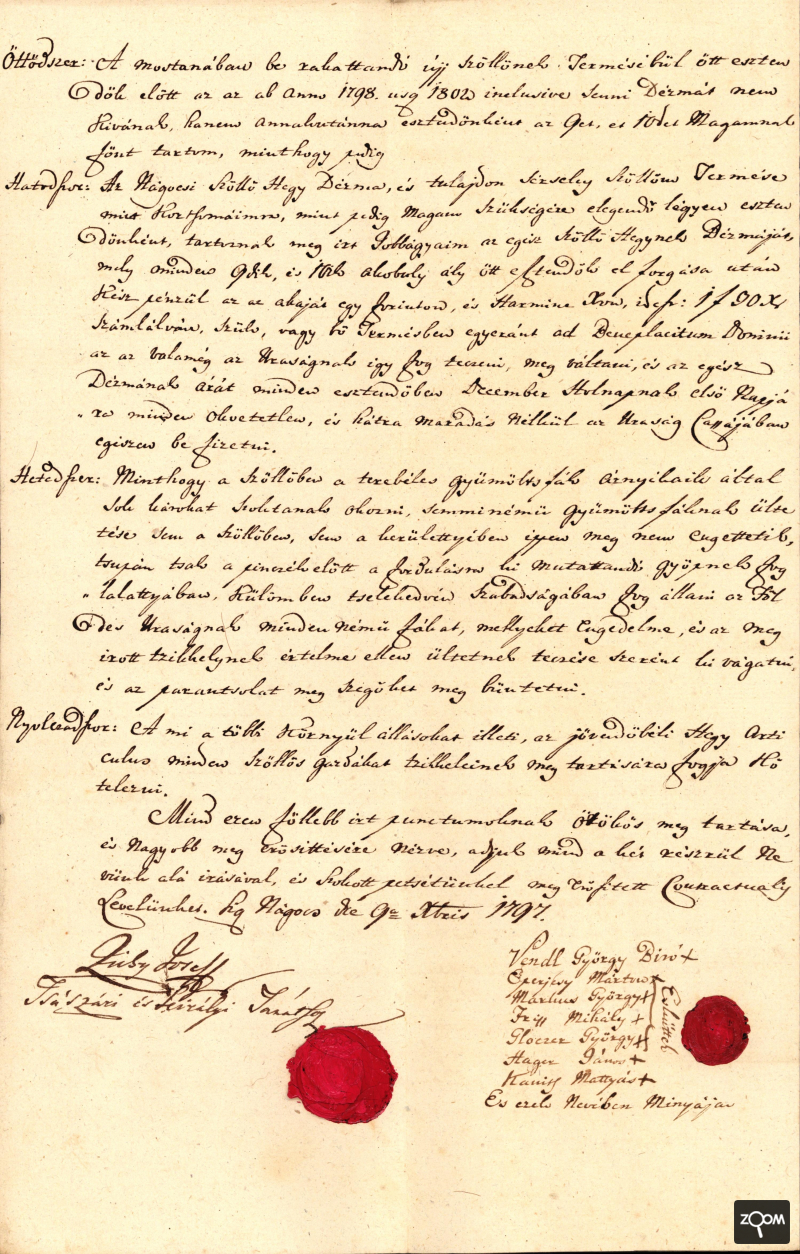 Öttödszer: A mostanában be rakattandó új szöllönek Terméséböl ött eszten
dök elött az az ab Anno 1798. usq 1802 inclusive semmi Dézmát nem
Kivánok, hanem annakutánna esztendönként az 9et, et 10det Magamnak
fönt tartom, minthogy pedig
Hatodszor: Az Nágocsi Szöllö Hegy Dézma, és tulajdon Szöllöm Termése
mint Kortsmáimra, mint pedig Magam Szükségire elegendö légyen eszten
dönként, tartoznak meg irt Jobbágyaim az egész Szöllö Hegynek Dézmáját,
mely minden 9dik, és 10dik akobuly ály ött esztendök el forgása után
Kész pénzül az az akaját egy forinton, és Harmincz Xron, id est: 1 f 30 X
számlálván, szük, vagy bö Termésben egyeránt ad Beneplacitum Dominii
az az valamég az Uraságnak igy fog teczeni, meg váltani, és az egész
Dézmának árát minden esztendöben December Holnapnak elsö Napjá
ra minden okvetetlen, és hátra maradás nélkül az Uraság Cassájában
egiszen be fizetni.
Hetedszer: Minthogy a Szöllöben a terebéles gyümölts fák árnyikaik által
sok károkat szoktanak okozni, semminémü gyümölts fáknak ülte
tése sem a Szöllöben, sem a kerülettyiben ippen meg nem engettetik,
tsupán tsak a pinczék elött a fordulásra ki mutattandó gyöpnek fog
lalattyában, külömben tselekedvén szabadságában fog állani az Föl
des Uraságnak minden némü fákat, mellyeket engedelme, és az meg
irott tzikkelynek értelme ellen ültetnek teczése szerént ki vágatni,
és az parantsolat meg szegöket meg büntetni.
Nyolczadszor: A mi a többi Környül állásokat illeti, az jövendöbéli Hegy Arti
culus minden Szöllös gazdákat tzikkeleinek meg tartására fogja Kö
telezni.
Mind ezen föllebb irt punctumoknak örökös meg tartása,
és Nagyobb meg erösittésére nézve, adjuk mind a két részrül Ne
vünk alá irásával, és szokott petsétünkel meg erösitett Contractualis
Levelünket. Sig Nágocs die 9a Xbris 1797.
Zichy Josef
Tsászári és Királyi Tanátsos
Vendl György Biró +
Eperjesy Márton +
Markus György +
Friss Mihály +
Gloczer György +
Hager János +
Kanis Mattyás +
Esküttek
És ezek Nevében Minyájan
ZOOM